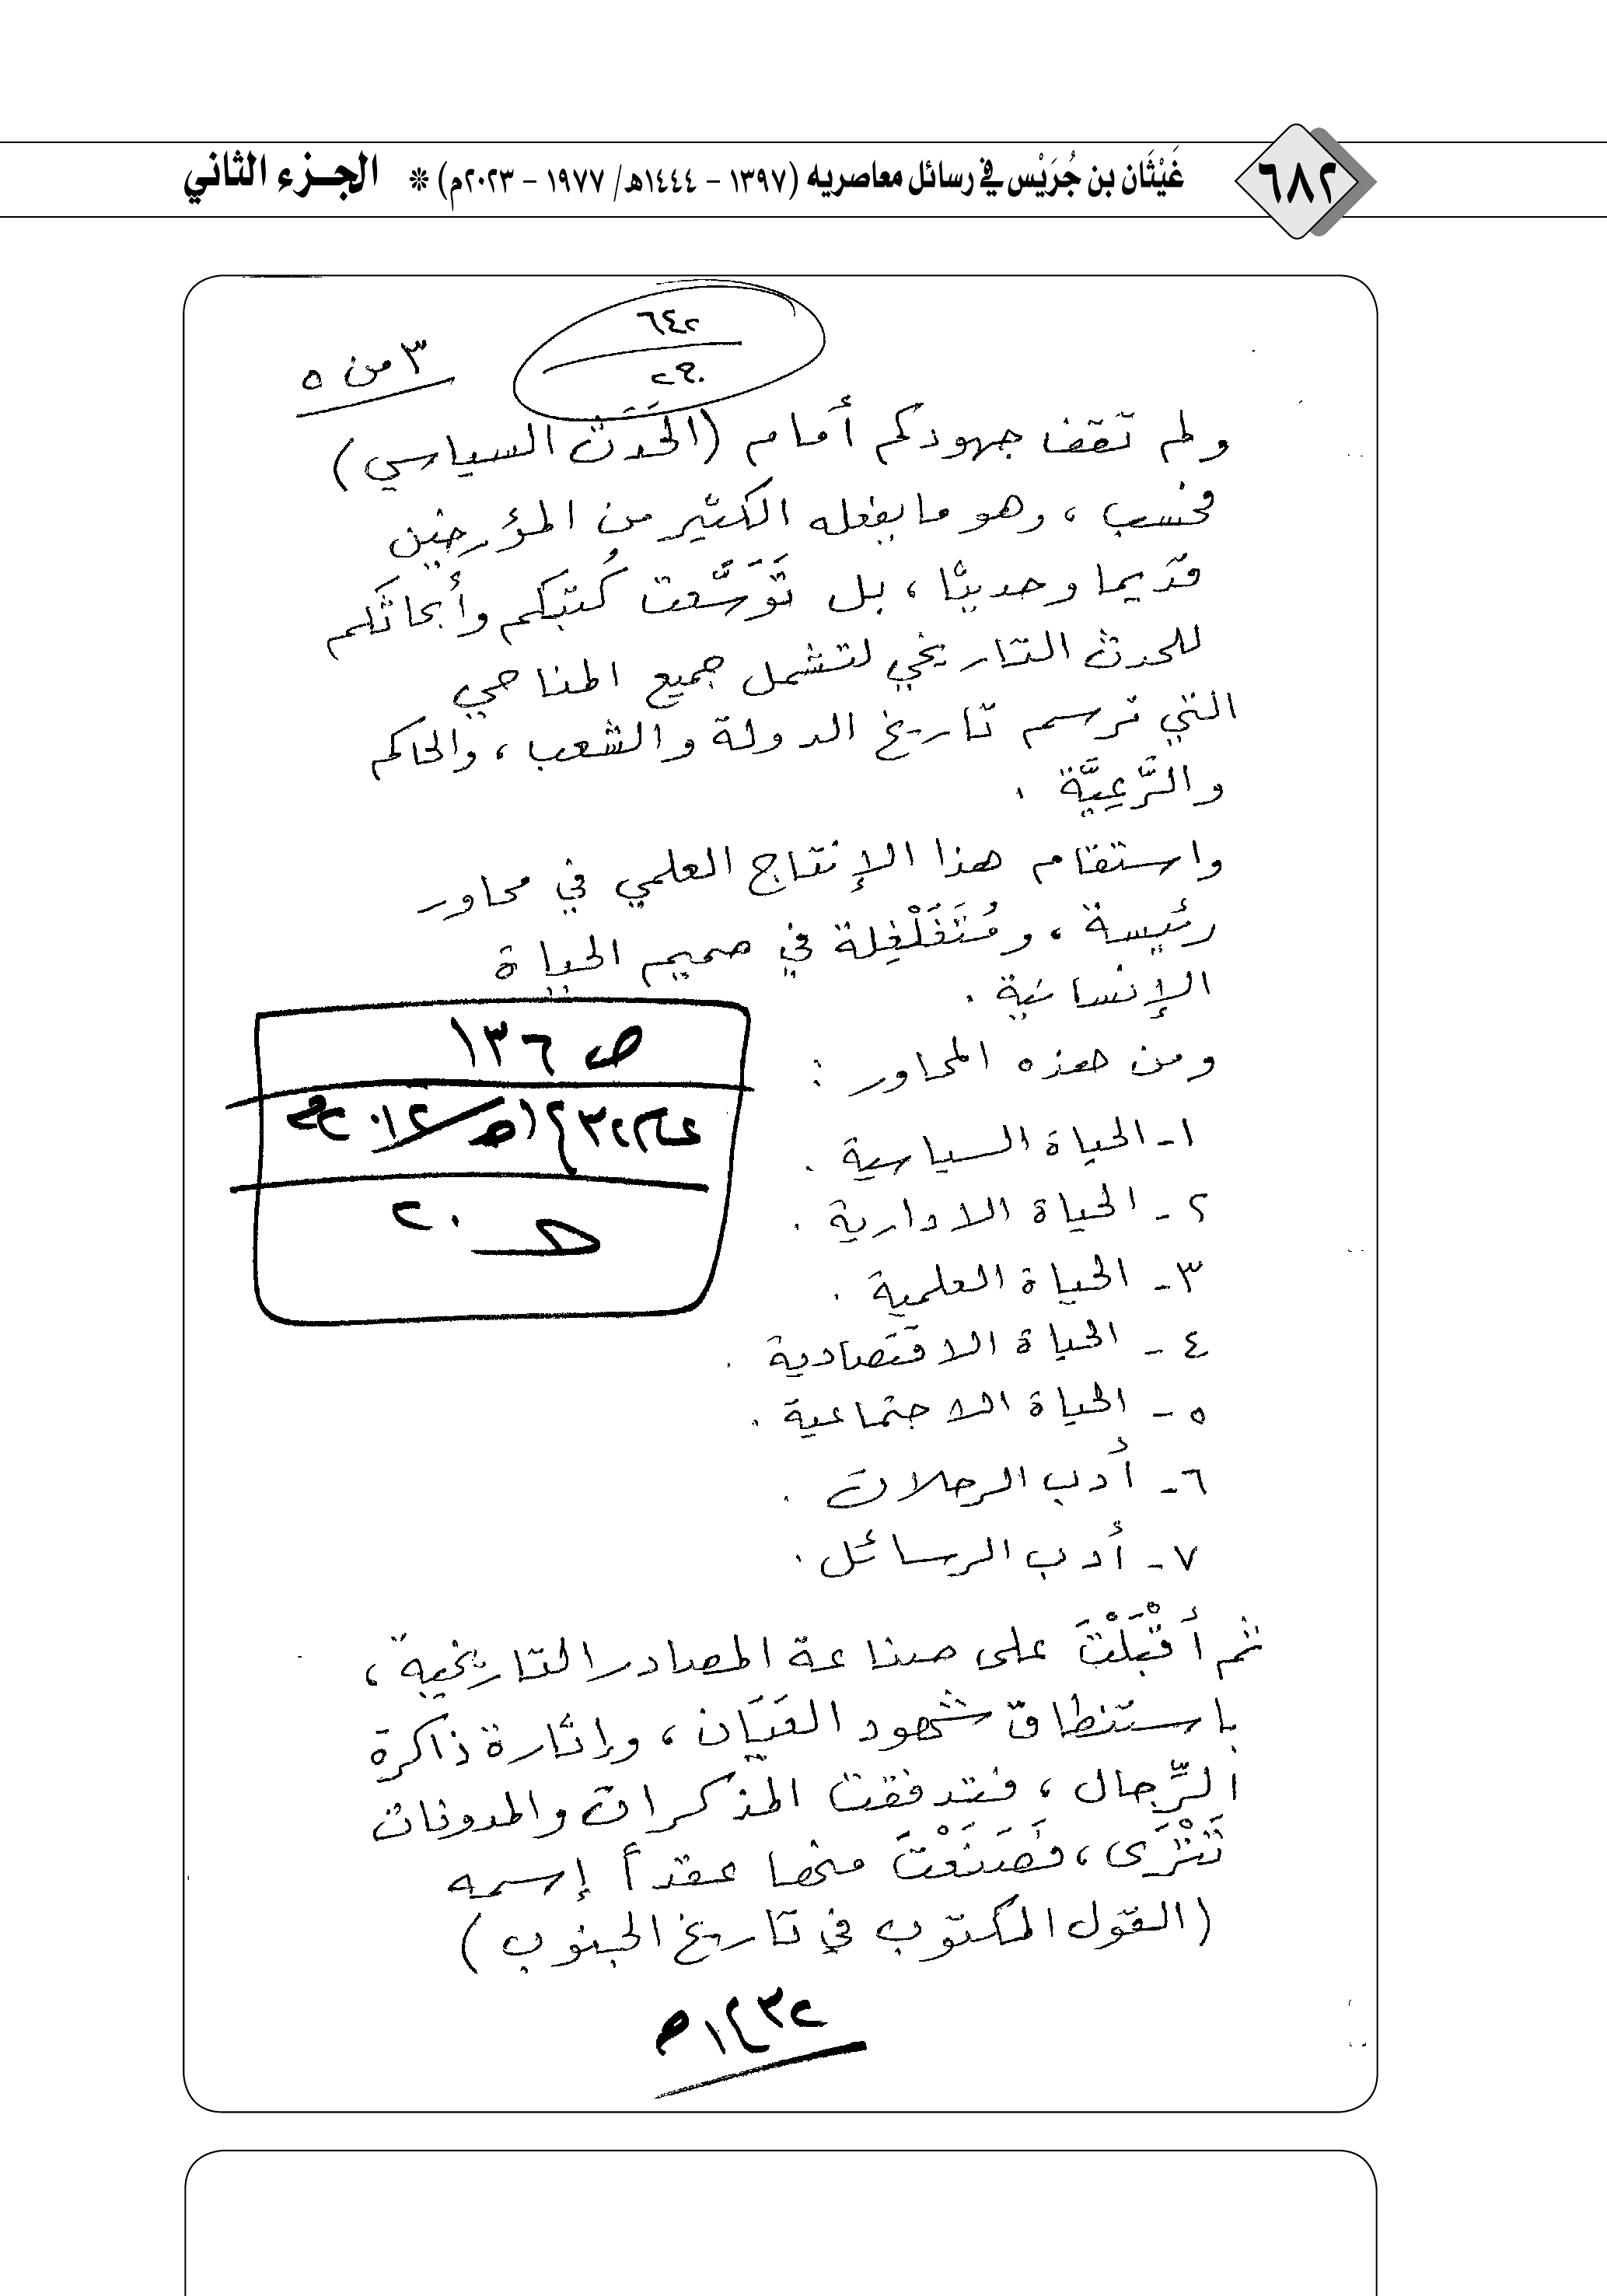 ٦٨٢
غَيْثَان بن جُرَيْس في رسائل معاصريه (١٣٩٧ - ١٤٤٤هـ/ ١٩٧٧ - ٢٠٢٣م) * الجزء الثاني
٦٤٢
٣ من ٥
ولم تقف جهودكم أمام (الحَدَث السياسي)
فحسب ، وهو ما يفعله الكثير من المؤرخين
قديما وحديثا ، بل تَوَسَّعت كُتبكم وأبحاثكم
للحدث التاريخي لتشمل جميع المناحي
التي ترسم تاريخ الدولة والشعب ، والحاكم
والرَّعِيَّة .
واستقام هذا الإنتاج العلمي في محاور
رئيسة ، ومُتَغَلْغِلة في صميم الحياة
الإنسانية .
ومن هذه المحاور :
ص ١٣٦
٢٠
١- الحياة السياسية .
٢- الحياة الادارية .
٣- الحياة العلمية .
٤- الحياة الاقتصادية .
٥- الحياة الاجتماعية .
٦- أدب الرحلات .
٧- أدب الرسائل .
ثم أقْبَلْتَ على صناعة المصادر التاريخية ،
باستنطاق شهود العَيَان ، وإثارة ذاكرة
الرِّجال ، فتدفقت المذكرات والمدونات
تَتْرَى ، فَصَنَعْتَ منها عقداً إسمه
(القول المكتوب في تاريخ الجنوب)